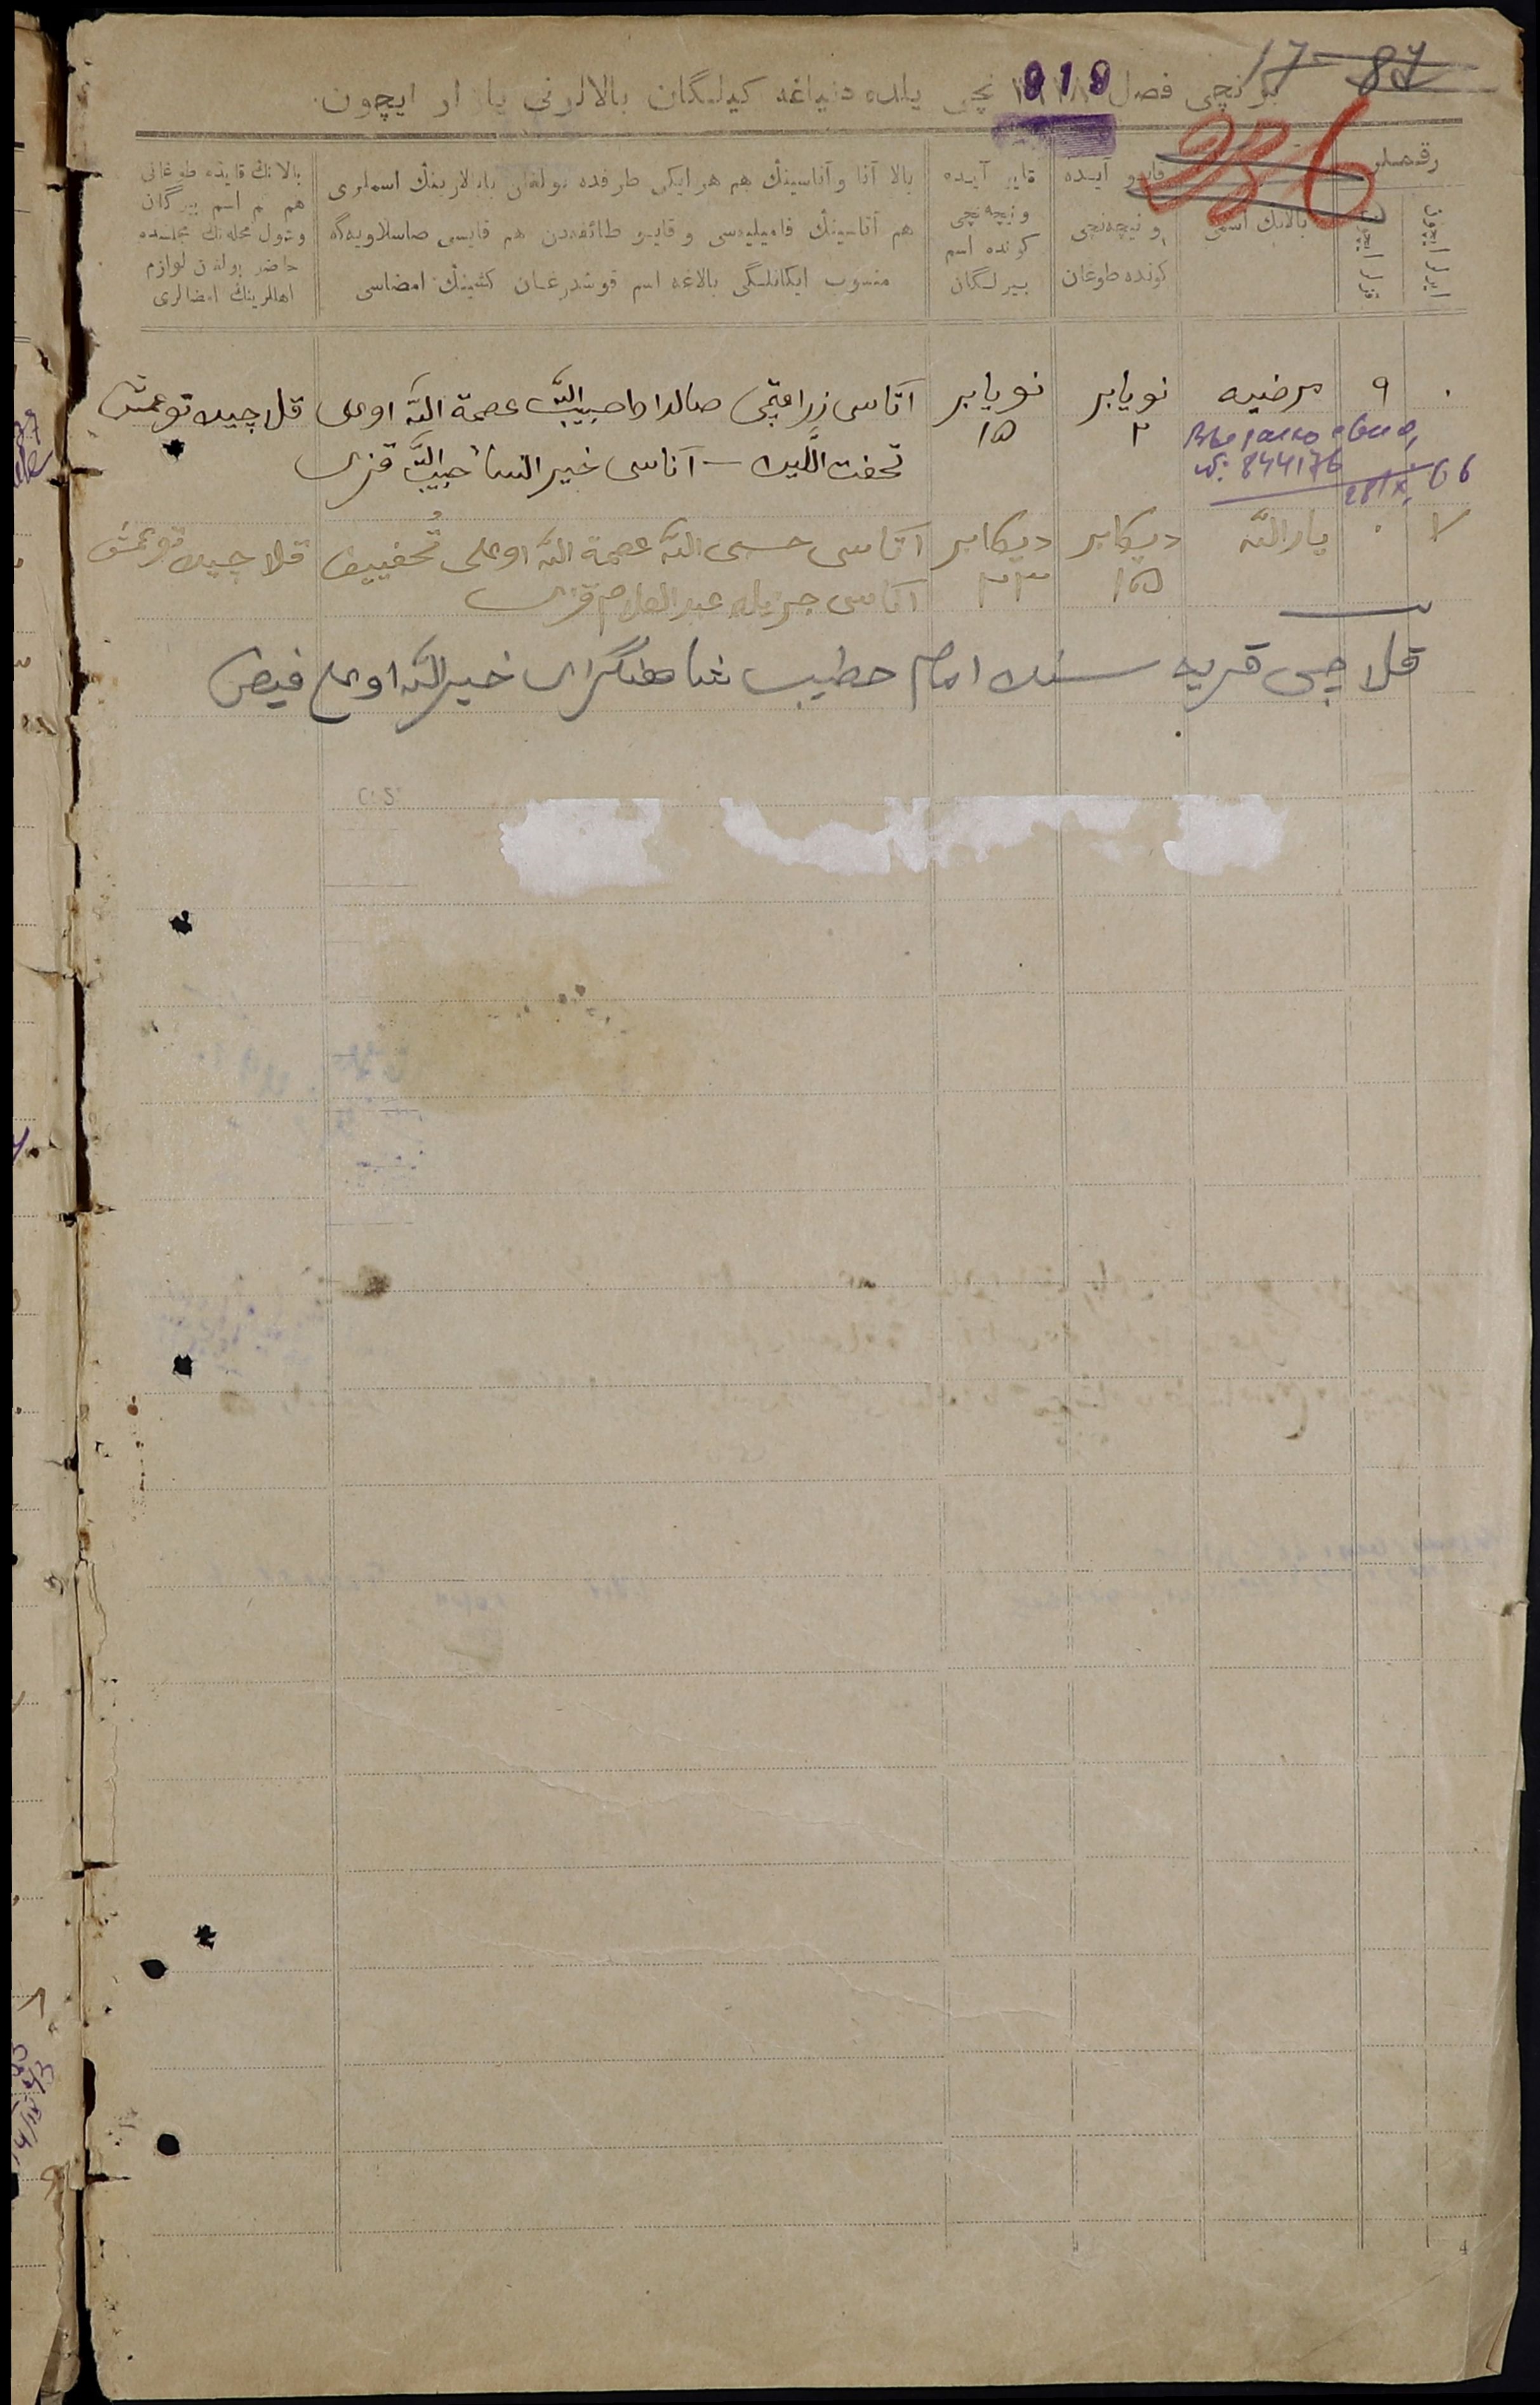 17-87
برنچی فصل ١٩١٨ نچی یلده دنیاغه کیلگان بالالرنی یازار ایچون.
236
رقملر
ایرلر ایچون
قزلر ایچون
بالانڭ اسمی
قایو آیده
و نیچه‌نچی
کونده طوغان
قایو آیده
و نیچه‌نچی
کونده اسم
بیرلگان
بالا آتا و آناسینڭ هم هر ایکی طرفده بولغان بابالارینڭ اسملری
هم آتاسینڭ فامیلیه‌سی و قایو طائفه‌دن هم قایسی صاسلاویه‌گه
منسوب ایکانلگی بالاغه اسم قوشدرغان کشینڭ امضاسی
بالانڭ قایده طوغانی
هم اسم بیرگان
وشول محله‌نڭ مجلسده
حاضر بولغان لوازم
اهللرینڭ امضالری
٩
مرضیه
نویابر
٢
نویابر
١٥
آتاسی زراعتچی حبیب الله عصمة الله اوغلی
آناسی خیر النسا حبیب الله قزی
قلاچیده توغمش
Выдано
№ 844176
28/X 66
٧
یار الله
دیکابر
١٥
دیکابر
٢٣
آتاسی الله عصمة الله اوغلی
آناسی جمیله قزی
قلاچیده توغمش
قلاچی قریه سنده امام خطیب خیر الله اوغلی فیضی
4